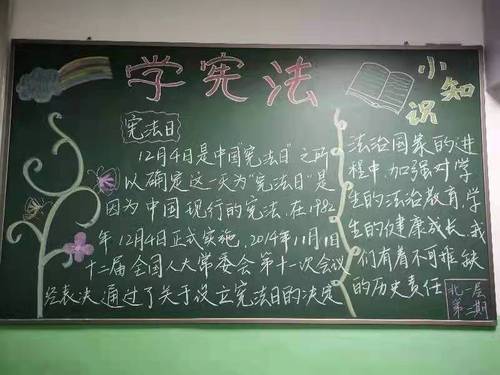 学宪法
小知识
宪法日
12月4日是中国"宪法日"之所
以确定这一天为"宪法日"是
因为中国现行的宪法,在1982
年12月4日正式实施,2014年11月1日
十二届全国人大常委会第十一次会议
经表决通过了关于设立宪法日的决定
法治国家的进
程中,加强对学
生的法治教育,学
生的健康成长,我
们有着不可推缺
的历史责任
北一层
第二期